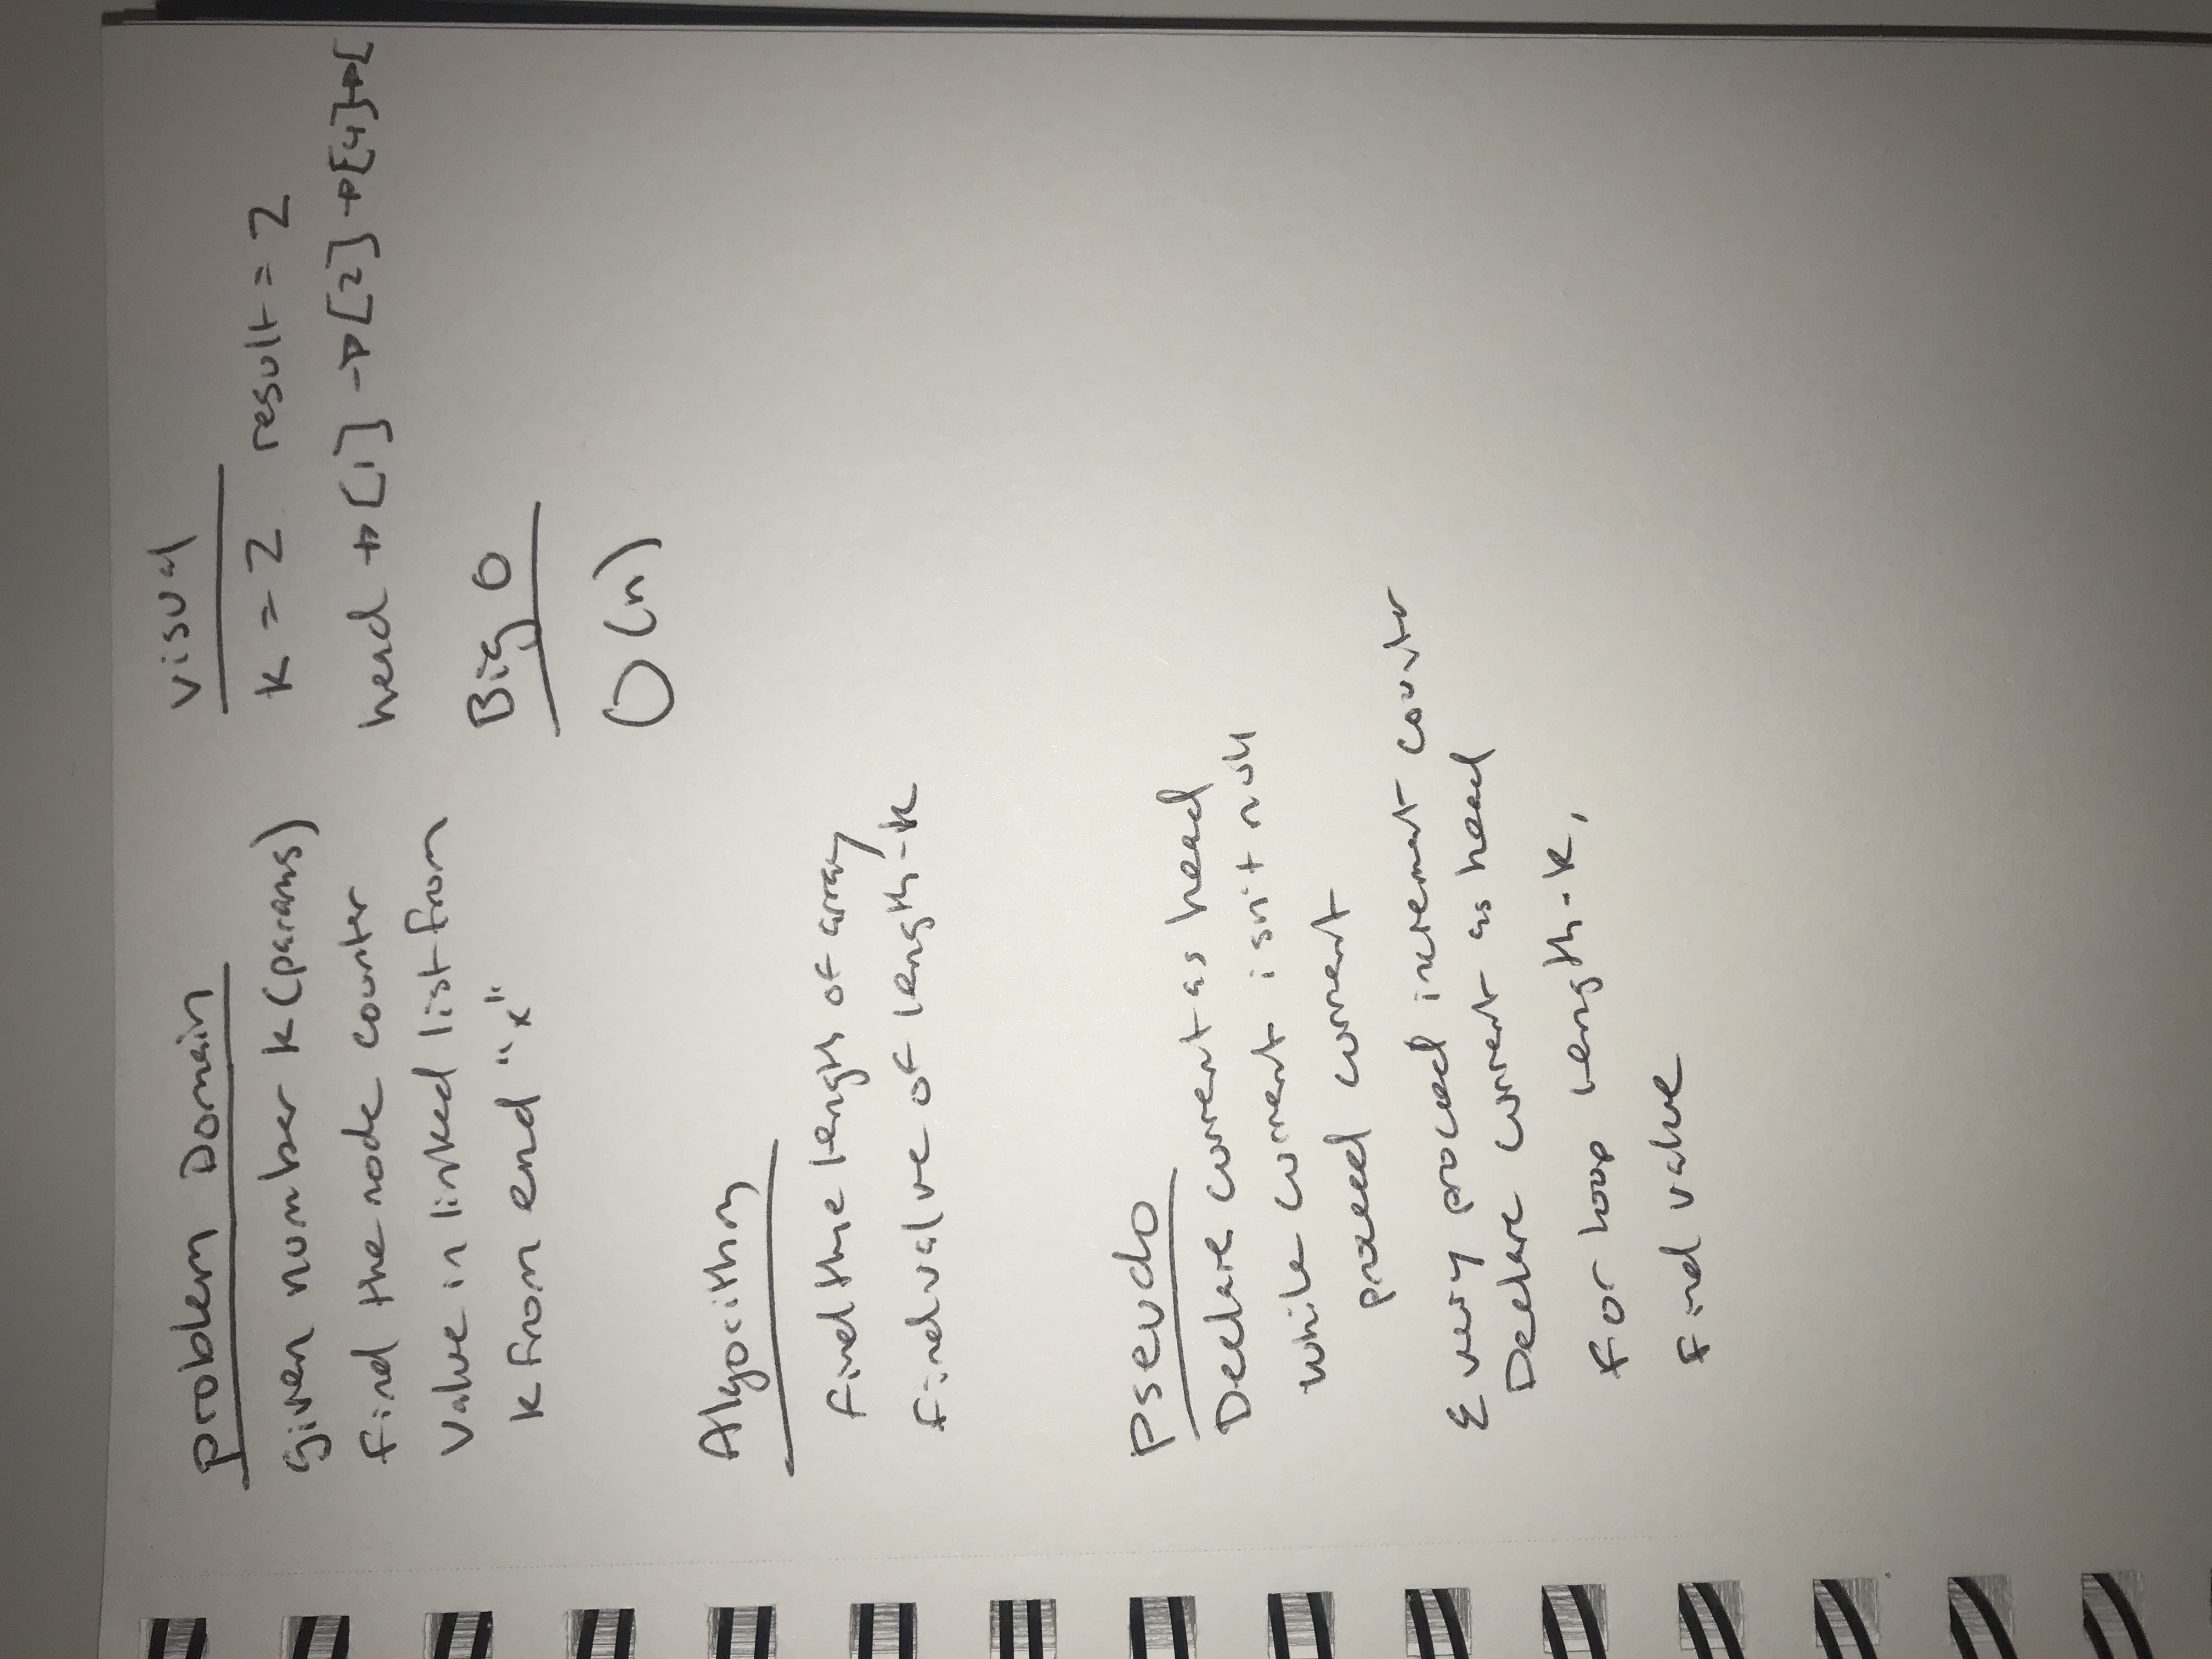 problem Domain
given number k (params)
find the node counter
value in linked list from
k from end "x"
visual
k = 2 result = 2
head → [1] → [2] → [4] → [
Big O
O(n)
Algorithm
find the length of array
find value of length - k
pseudo
Declare current as head
while current isn't null
proceed current
Every proceed increment counter
Declare current as head
for loop length - k,
find value